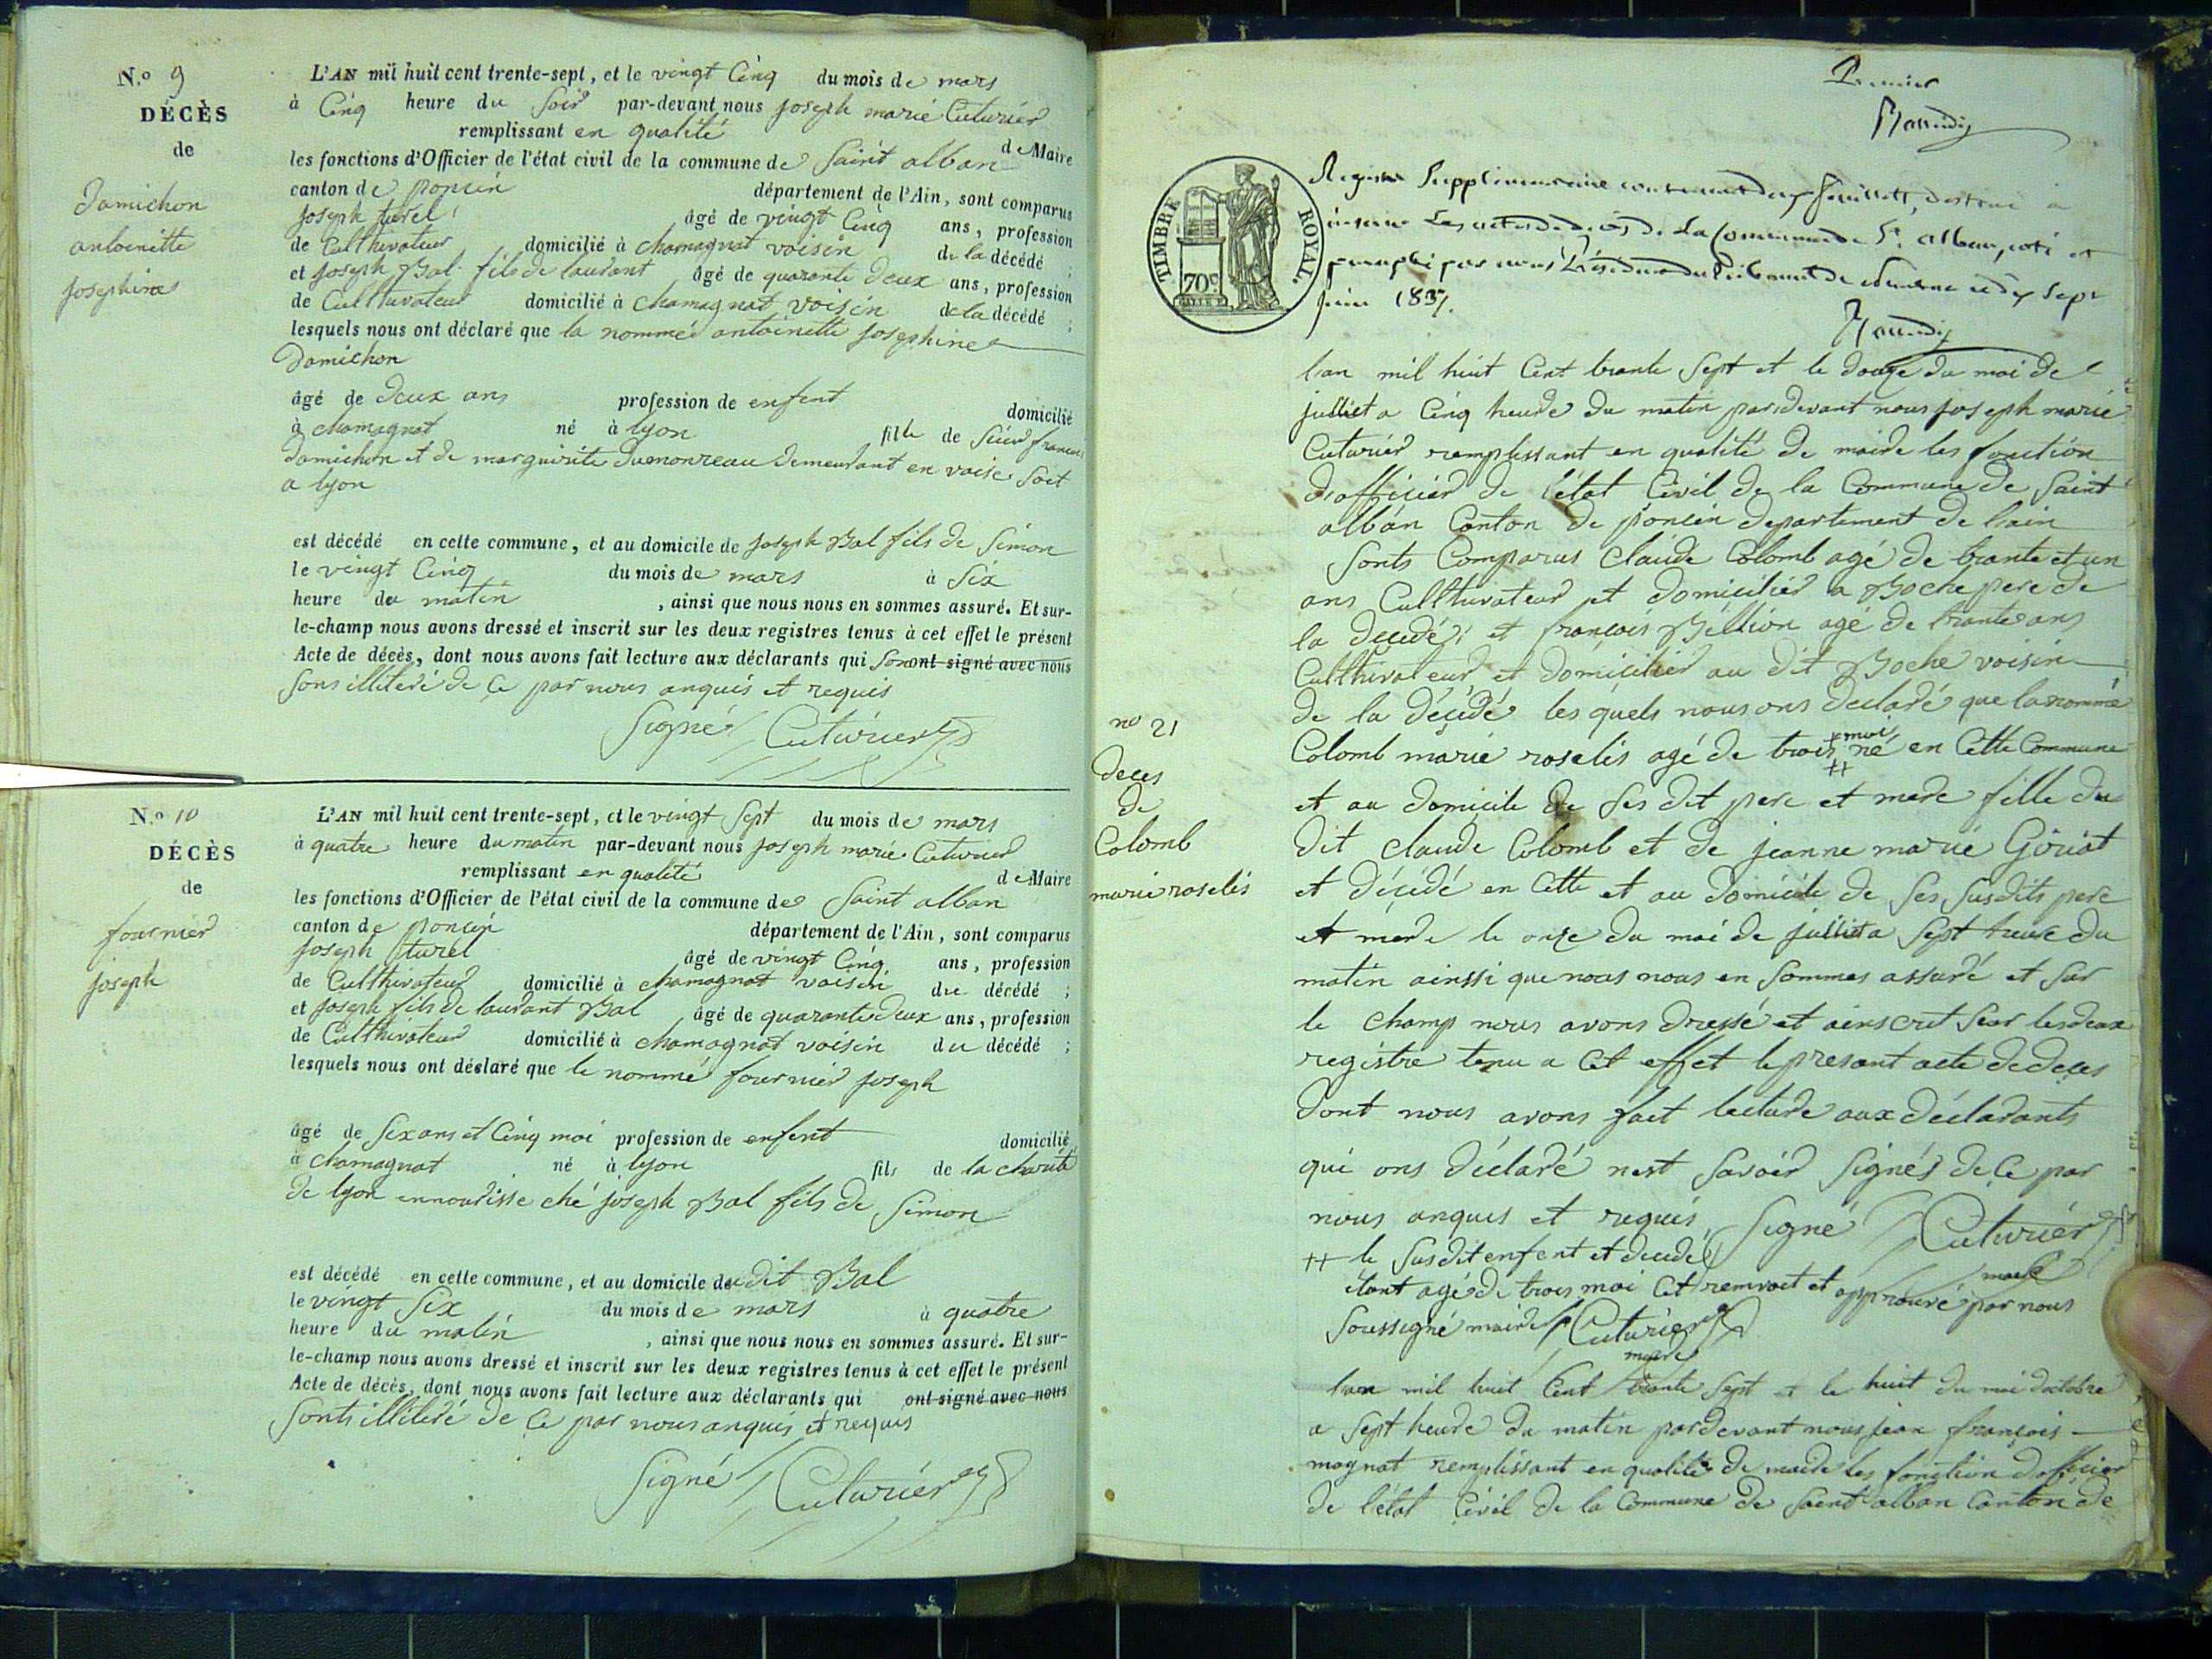 N.o 9
DÉCÈS
de
Damichon
antoinette
josephine
L'AN mil huit cent trente-sept, et le vingt Cinq du mois de mars
à Cinq heure du soir par-devant nous joseph marie Cuturier
remplissant en qualité de Maire
les fonctions d'Officier de l'état civil de la commune de Saint alban
canton de poncin département de l'Ain, sont comparus
joseph turel âgé de vingt Cinq ans, profession
de Culthivateur domicilié à chamagnat voisin de la décédé ;
et joseph Bal fils de laurant âgé de quarante deux ans, profession
de Culthivateur domicilié à chamagnat voisin de la décédé ;
lesquels nous ont déclaré que la nommé antoinette josephine
Damichon
âgé de deux ans profession de enfent domicilié
à chamagnat né à lyon fille de sieur francois
damichon et de marguirite dumonreau demeurant en vaise soit
a lyon
est décédé en cette commune, et au domicile de joseph Bal fils de Simon
le vingt Cinq du mois de mars à Six
heure du matin , ainsi que nous nous en sommes assuré. Et sur-
le-champ nous avons dressé et inscrit sur les deux registres tenus à cet effet le présent
Acte de décès, dont nous avons fait lecture aux déclarants qui ont signé avec nous
sons illiteré de Ce par nous anquis et requis
Signé Cuturier
N.o 10
DÉCÈS
de
fournier
joseph
L'AN mil huit cent trente-sept, et le vingt Sept du mois de mars
à quatre heure du matin par-devant nous joseph marie Cuturier
remplissant en qualité de Maire
les fonctions d'Officier de l'état civil de la commune de Saint alban
canton de poncin département de l'Ain, sont comparus
joseph turel âgé de vingt Cinq ans, profession
de Culthivateur domicilié à chamagnat voisin du décédé ;
et joseph fils de laurant Bal âgé de quarante deux ans, profession
de Culthivateur domicilié à chamagnat voisin du décédé ;
lesquels nous ont déclaré que le nommé fournier joseph
âgé de six ans et Cinq moi profession de enfent domicilié
à chamagnat né à lyon fils de la charité
de lyon ennourisse ché joseph Bal fils de Simon
est décédé en cette commune, et au domicile du dit Bal
le vingt Six du mois de mars à quatre
heure du matin , ainsi que nous nous en sommes assuré. Et sur-
le-champ nous avons dressé et inscrit sur les deux registres tenus à cet effet le présent
Acte de décès, dont nous avons fait lecture aux déclarants qui ont signé avec nous
Sonts illiteré de Ce par nous anquis et requis
Signé Cuturier
Premier
TIMBRE ROYAL.
70c
Registre Supplémentaire contenant deux feuillets, destiné à
inscrire Les actes de décès de La Commune de St. alban, coté et
paraphé par nous Président du Tribunal de Nantua ce dix Sept
juin 1837.
lan mil huit Cent trante Sept et le douze du moi de
julliet a Cinq heure du matin pardevant nous joseph marie
Cuturier remplissant en qualité de maire les fonction
dofficier de l'état Civil de la Commune de Saint
alban Canton de poncin departement de lain
Sonts Comparus Claude Colomb agé de trante et un
ans Culthivateur et domicilier a Boche pere de
la decédé et françois Bellion agé de trante ans
Culthivateur et domicilier au dit Boche voisin
de la décédé les quels nous ons declaré que la nommé
no 21
deces
de
Colomb
marie roselis
Colomb marie roselis agé de trois né en Cette Commune
+ moi
++
et au domicile de ses dit pere et mere fille du
dit claude Colomb et de jeanne marie Goiiot
et décédé en Cette et au domicile de ses susdits pere
et mere le onze du moi de julliet a Sept heure du
matin ainssi que nous nous en Sommes assuré et Sur
le champ nous avons dressé et ainscrit Sur les deux
registre tenu a Cet effet le presant acte de deces
dont nous avons fait lecture aux déclarants
qui ons déclaré nest savoir Signés de Ce par
nous anquis et requis Signé Cuturier
maire
++ le Susdit enfent et decedé
étant agé de trois moi Cet remvoit et approuvé par nous
Soussigné maire Cuturier
maire
lan mil huit Cent trante Sept et le huit du moi doctobre
a Sept heure du matin pardevant nous jean françois
magnat remplissant en qualité de maire les fonction dofficier
de l'état Civil de la Commune de Saint alban Canton de